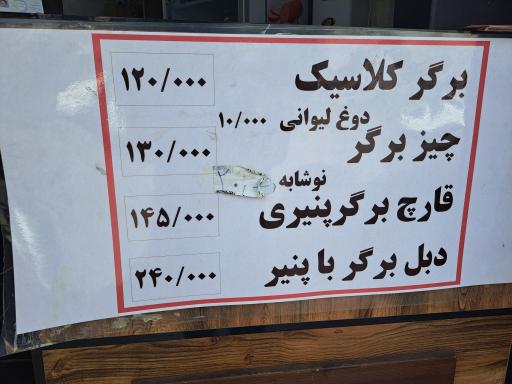 برگر کلاسیک ۱۲۰/۰۰۰
دوغ لیوانی ۱۰/۰۰۰
چیز برگر ۱۳۰/۰۰۰
نوشابه
قارچ برگر پنیری ۱۴۵/۰۰۰
دبل برگر با پنیر ۲۴۰/۰۰۰